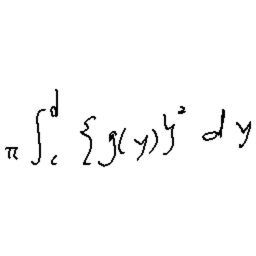 π ∫_c^d {g(y)}² dy